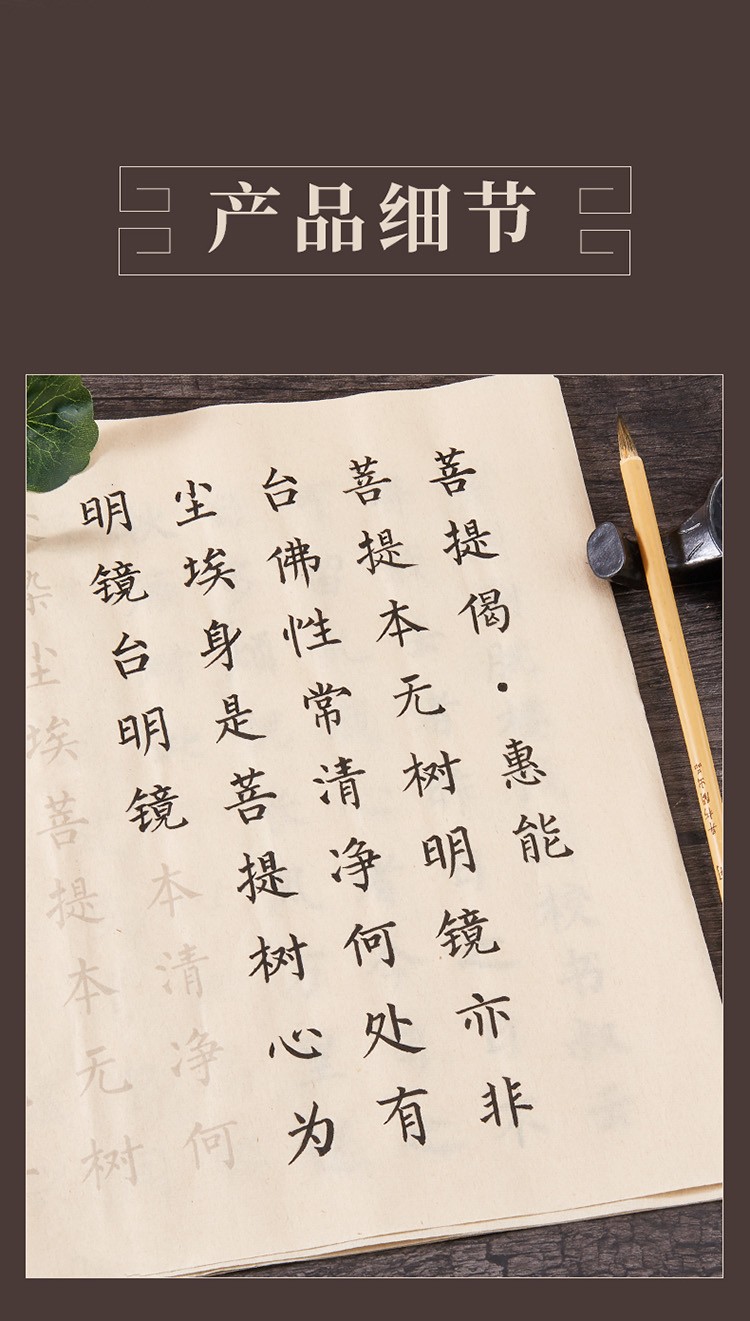 产品细节
菩提偈·惠能
菩提本无树明镜亦非
台佛性常清净何处有
尘埃身是菩提树心为
明镜台明镜本清净何
染尘埃菩提本无树